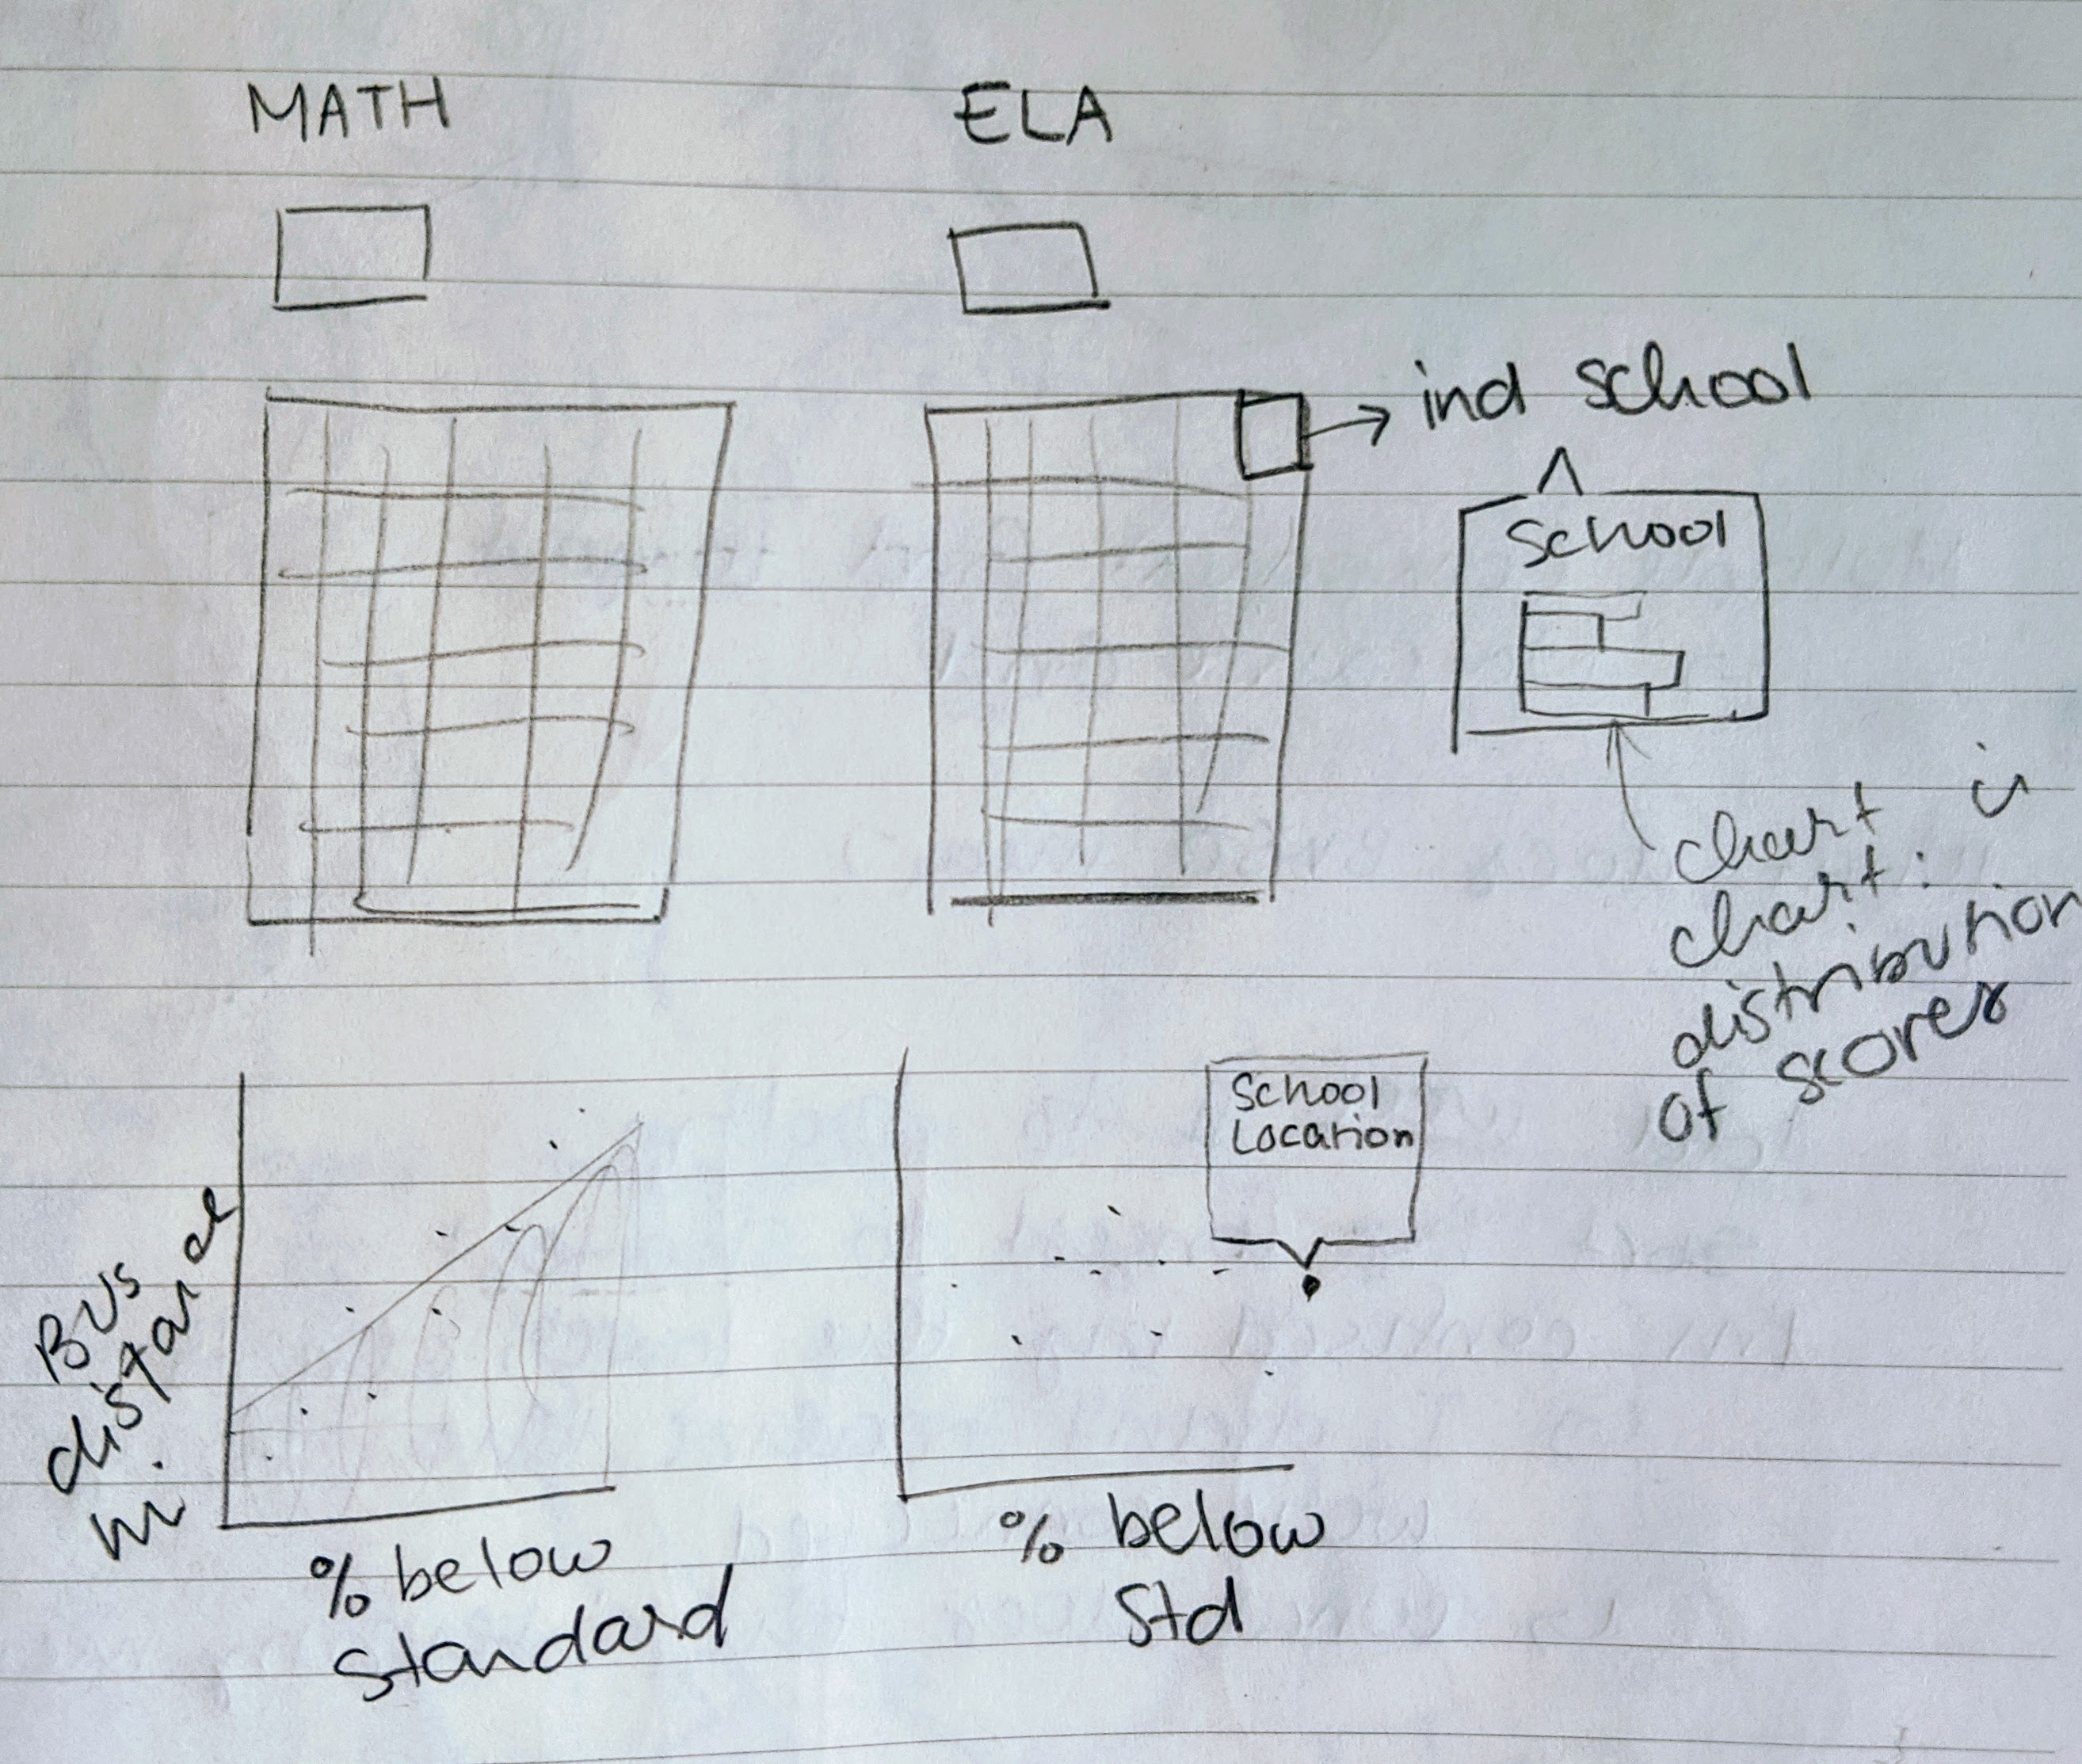 MATH
ELA
ind school
School
chart is
chart:
distribution
of scores
Bus
distance
mi.
% below
standard
School
Location
% below
Std